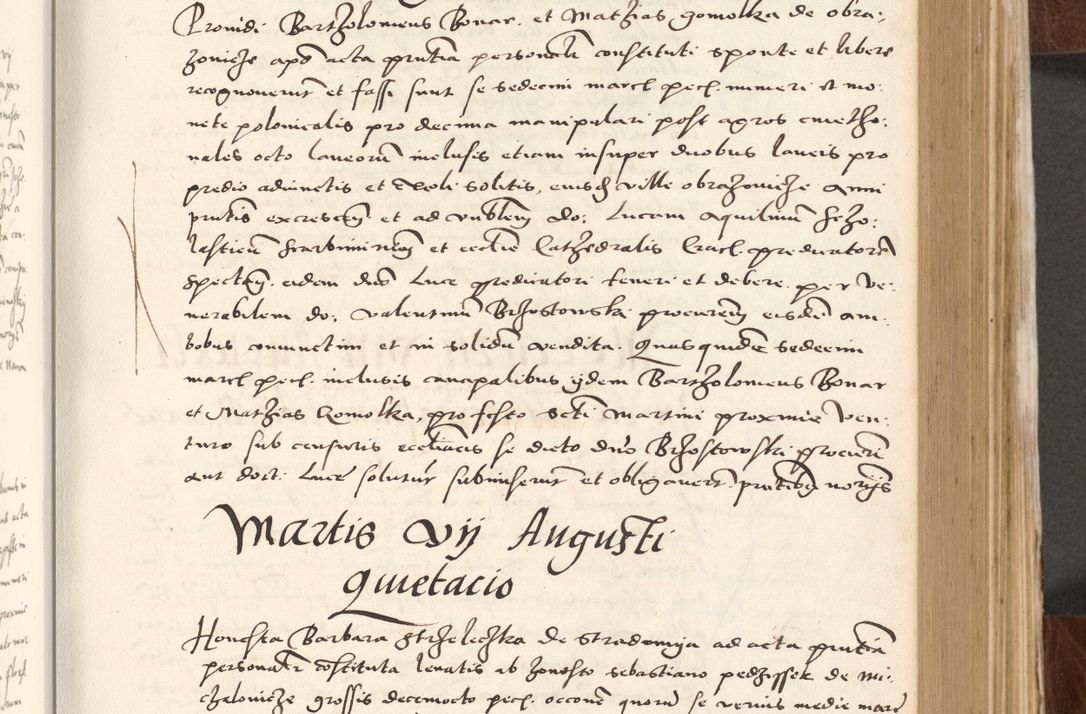 Prouidi Bartholomeus Bonar. et Mathias gomolka de obra:
zoniche apd acta pntia personalr constituti sponte et libere
recognouerut et fassi sunt se sedecim march pecl. numeri et mo:
nete polonicalis pro decima manipulari post agros cmetho:
nales octo laneoru inclusis etiam insuper duobus laneis pro
predio adiunctis et soli solitis, eiusd ville obrazoniche Anni
pntis excrescen et ad dno: Lucam Aquilinum Scho:
lasticu Scarbimirien et ecclie Cathedralis Cracl. predicatore
specten. eidem dno Luce predicatori teneri et debere. per Ve:
nerabilem do: Valentinu Brzostowski procurem eisde am:
bobus coniunctim et in solidu vendita. Quasquide sedecim
march pecl. inclusis canapalibus ijdem Bartholomeus Bonar
et Mathias Gomolka, pro festo Scti Martini proxime Ven:
turo sub censuris eccliacis se dicto dno Brzostowski procure
aut doct: Luce soluturos submiserut et obligauert. pntibg
Martis Vij Augusti
Quietacio
Honesta Barbara Strzelechka de Stradomija ad acta pntia
personalr costituta leuatis ab honesto Sebastiano pedzissek de Mi:
chalouicze grossis decemocto pecl. occone quoru se vernis medie marce